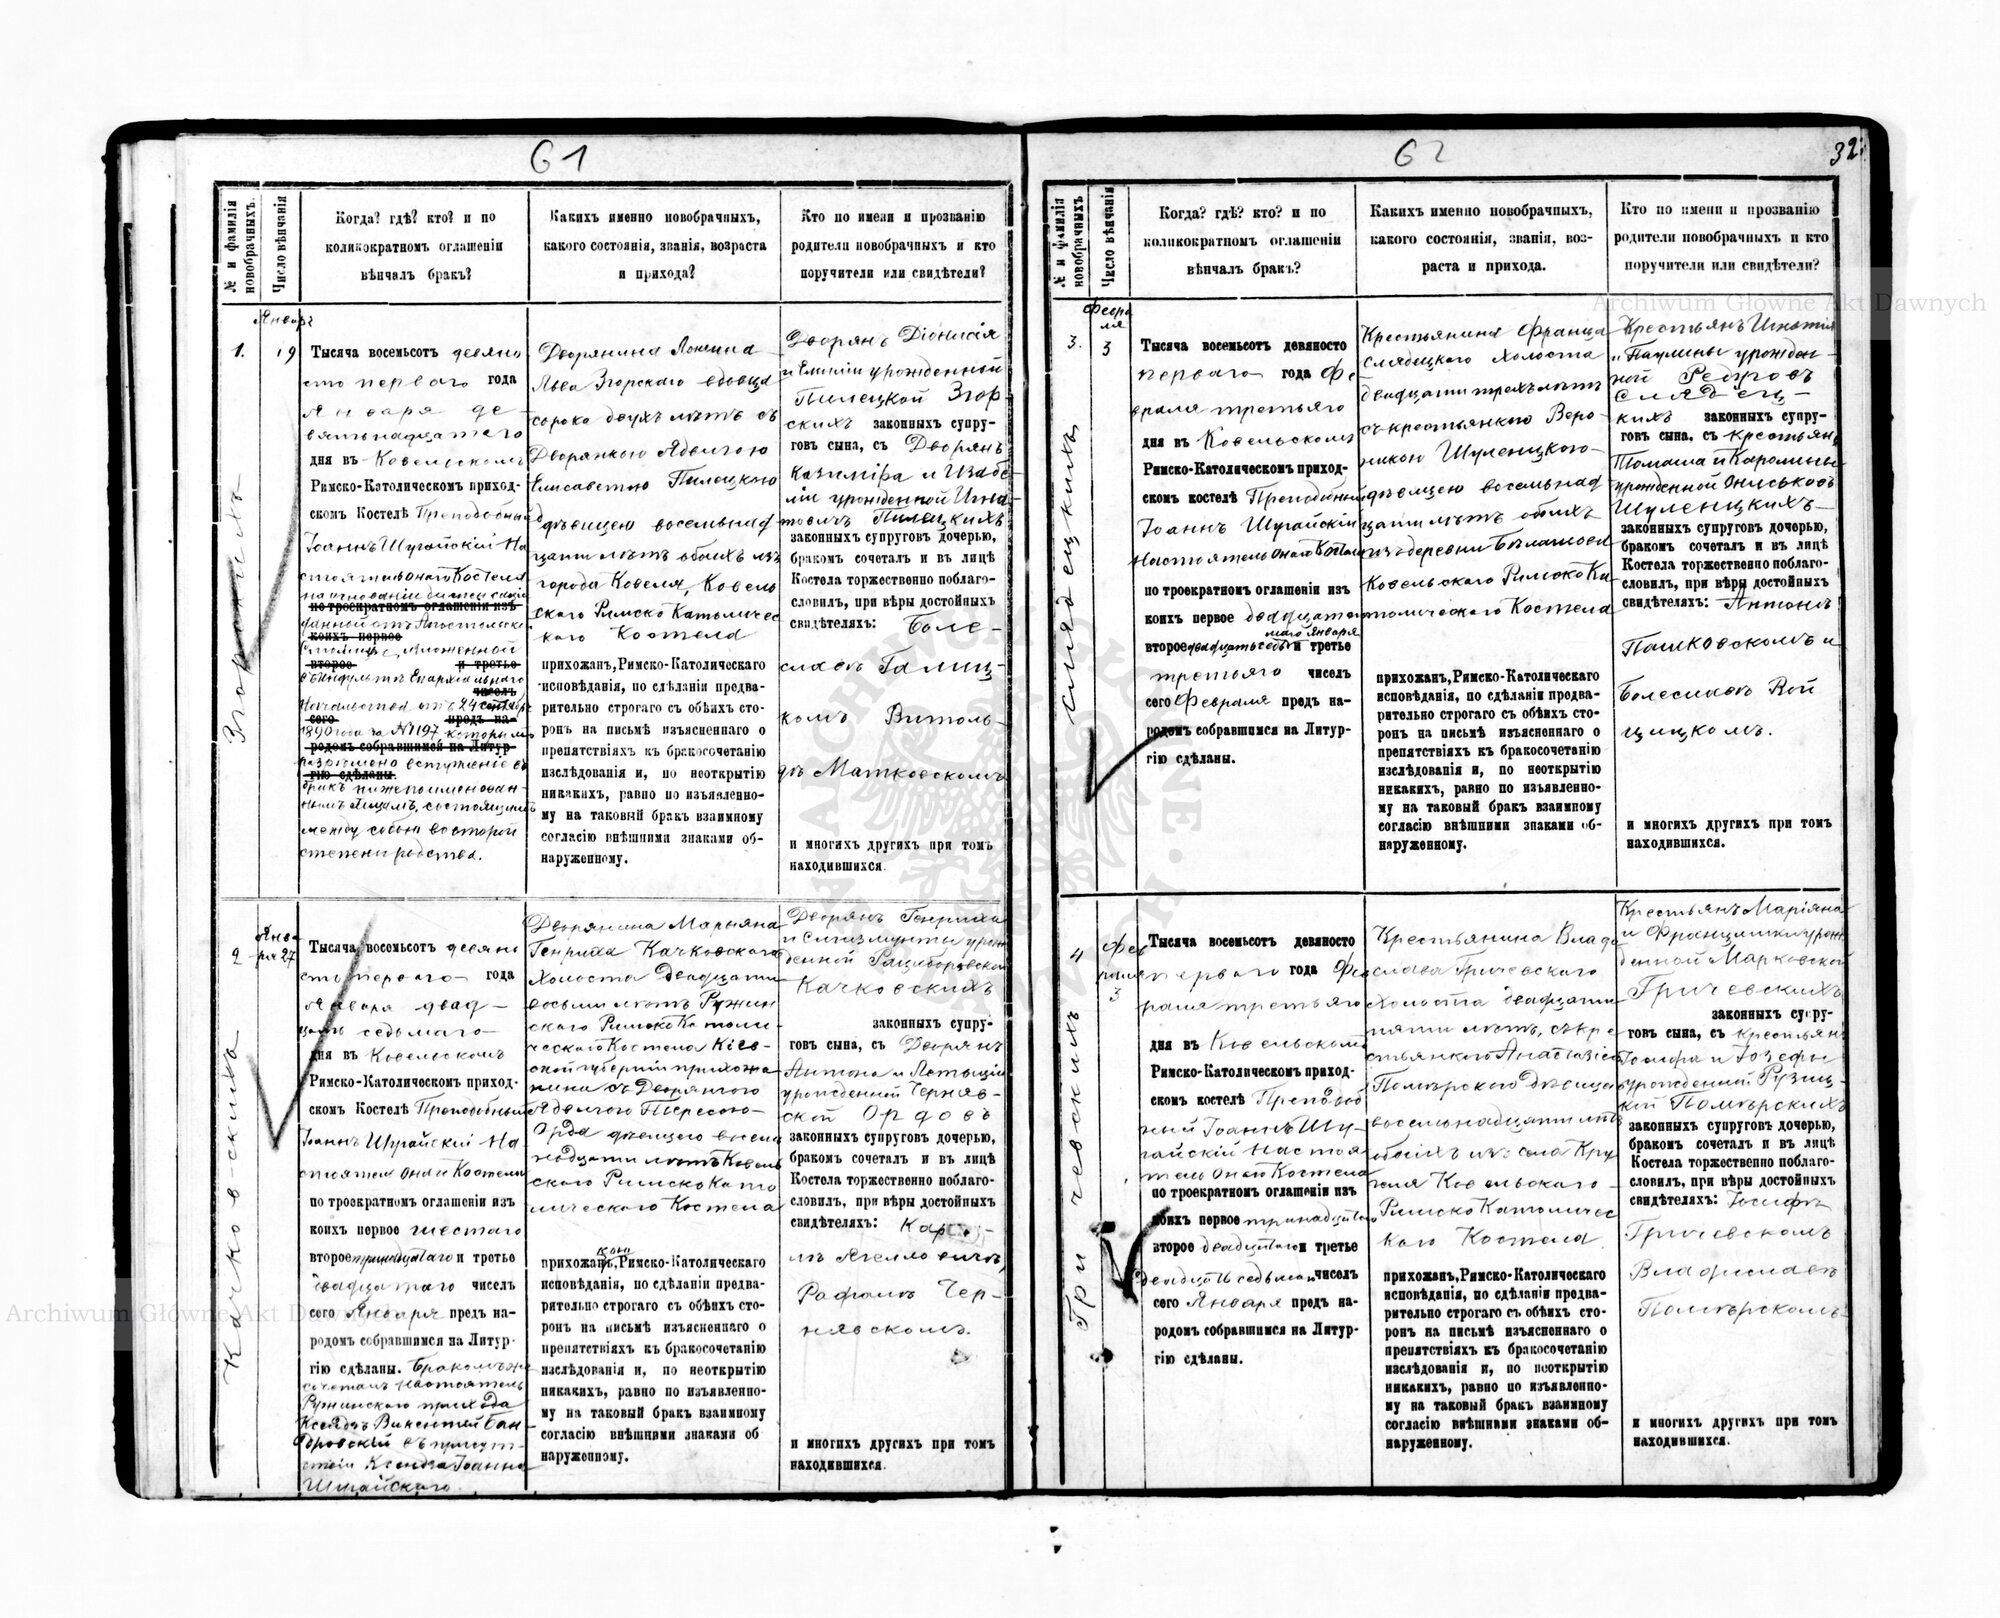 61
№ и фамилія новобрачныхъ.
Число вѣнчанія
Когда? гдѣ? кто? и по
коликократномъ оглашеніи
вѣнчалъ бракъ?
Какихъ именно новобрачныхъ,
какого состоянія, званія, возраста
и прихода?
Кто по имени и прозванію
родители новобрачныхъ и кто
поручители или свидѣтели?
1.
Январ
19
Тысяча восемьсотъ девяно
сто перваго года
Января де
вятьнадцатаго
дня въ Ковельскомъ
Римско-Католическомъ приход-
скомъ Костелѣ Преподобный
Іоаннъ Шугайскій На
стоятель онаго Костела
по троекратномъ оглашеніи изъ
коихъ первое
второе и третье
чиселъ
сего предъ на-
родомъ собравшимся на Литур-
гію сдѣланы.
1890 года за № 1197 которымъ
разрѣшено вступленіе въ
бракъ нижепоименован
нымъ лицамъ, состоящимъ
между собою во второй
степени родства.
Дворянина
Льва Згорскаго вдовца
сорока двухъ лѣтъ съ
Дворянкою Ядвигою
Елисаветою Пилецкою
дѣвицею восемьнад
цати лѣтъ обоихъ изъ
города Ковеля, Ковель
скаго Римско Католичес
каго Костела
прихожанъ, Римско-Католическаго
исповѣданія, по сдѣланіи предва-
рительно строгаго съ обѣихъ сто-
ронъ на письмѣ изъясненнаго о
препятствіяхъ къ бракосочетанію
изслѣдованія и, по неоткрытію
никакихъ, равно по изъявленно-
му на таковый бракъ взаимному
согласію внѣшними знаками об-
наруженному.
Дворянъ Діонисія
и Емиліи урожденной
Пилецкой Згор
скихъ законныхъ супру-
говъ сына, съ Дворянъ
Казиміра и Изабе
ліи урожденной Игна
товичъ Пилецкихъ
законныхъ супруговъ дочерью,
бракомъ сочеталъ и въ лицѣ
Костела торжественно поблаго-
словилъ, при вѣры достойныхъ
свидѣтеляхъ: Боле-
славѣ Галиц
комъ Витоль
дѣ Матковскомъ
и многихъ другихъ при томъ
находившихся.
2
Янва
ря 27
Качков-скихъ
Тысяча восемьсотъ девяно
сто перваго года
Января двад-
цать седьмаго
дня въ Ковельскомъ
Римско-Католическомъ приход-
скомъ Костелѣ Преподобный
Іоаннъ Шугайскій На
стоятель онаго Костела
по троекратномъ оглашеніи изъ
коихъ первое шестаго
второе тринадцатаго и третье
двадцатаго чиселъ
сего Января предъ на-
родомъ собравшимся на Литур-
гію сдѣланы. Бракомъ же
сочеталъ настоятель
Ружинскаго прихода
Ксендзъ Викентій Бан
дровскій въ присут
ствіи Ксендза Іоанна
Шугайскаго.
Дворянина Марьяна
Генриха Качковскаго
Холоста двадцати
восьми лѣтъ Ружин
скаго Римско Католи
ческаго Костела Кіев
ской губерніи прихожа
нина съ Дворянкою
Ядвигою Тересою
Орда дѣвицею восем
надцати лѣтъ Ковель
скаго Римско Като
лическаго Костела
прихожанкою, Римско-Католическаго
исповѣданія, по сдѣланіи предва-
рительно строгаго съ обѣихъ сто-
ронъ на письмѣ изъясненнаго о
препятствіяхъ къ бракосочетанію
изслѣдованія и, по неоткрытію
никакихъ, равно по изъявленно-
му на таковый бракъ взаимному
согласію внѣшними знаками об
наруженному.
Дворянъ Генриха
и Сигизмунты урож
денной Рациборовской
Качковскихъ
законныхъ супру-
говъ сына, съ Дворянъ
Антона и Летыціи
урожденной Черняв-
ской Ордовъ
законныхъ супруговъ дочерью,
бракомъ сочеталъ и въ лицѣ
Костела торжественно поблаго-
словилъ, при вѣры достойныхъ
свидѣтеляхъ: Кар-
лѣ Ягелловичѣ,
Рафаилѣ Чер-
нявскомъ.
и многихъ другихъ при томъ
находившихся.
62
32
№ и фамилія новобрачныхъ
Число вѣнчанія
Когда? гдѣ? кто? и по
коликократномъ оглашеніи
вѣнчалъ бракъ?
Какихъ именно новобрачныхъ,
какого состоянія, званія, воз-
раста и прихода.
Кто по имени и прозванію
родители новобрачныхъ и кто
поручители или свидѣтели?
3.
Февра
ля
3
Слядецкихъ
Тысяча восемьсотъ девяносто
перваго года Фе
враля третьяго
дня въ Ковельскомъ
Римско-Католическомъ приход-
скомъ костелѣ Преподобный
Іоаннъ Шугайскій
Настоятель онаго Костела
по троекратномъ оглашеніи изъ
коихъ первое двадцатаго
второе двадцать седьмаго Января и третье
третьяго чиселъ
сего Февраля предъ на-
родомъ собравшимся на Литур-
гію сдѣланы.
Крестьянина Франца
Слядецкаго холоста
двадцати трехъ лѣтъ
съ крестьянкою Веро
никою Шуленицкою
дѣвицею восемьнад
цати лѣтъ обоихъ
изъ деревни
Ковельскаго Римско Ка
толическаго Костела
прихожанъ, Римско-Католическаго
исповѣданія, по сдѣланіи предва-
рительно строгаго съ обѣихъ сто-
ронъ на письмѣ изъясненнаго о
препятствіяхъ къ бракосочетанію
изслѣдованія и, по неоткрытію
никакихъ, равно по изъявленно-
му на таковый бракъ взаимному
согласію внѣшними знаками об-
наруженному.
Крестьянъ Игнатія
и Паулины урожден-
ной
Слядец-
кихъ законныхъ супру-
говъ сына, съ крестьянъ
Томаша и Каролины
урожденной
Шуленицкихъ
законныхъ супруговъ дочерью,
бракомъ сочеталъ и въ лицѣ
Костела торжественно поблаго-
словилъ, при вѣры достойныхъ
свидѣтеляхъ: Антонѣ
Пашковскомъ и
Болеславѣ Вой
цицкомъ.
и многихъ другихъ при томъ
находившихся.
4
Фев
раля
3
Гричевскихъ
Тысяча восемьсотъ девяносто
перваго года Фев
раля третьяго
дня въ Ковельскомъ
Римско-Католическомъ приход-
скомъ костелѣ Преподоб
ный Іоаннъ Шу-
гайскій Настоя
тель онаго Костела
по троекратномъ оглашеніи изъ
коихъ первое тринадцатаго
второе двадцатаго и третье
двадцать седьмаго чиселъ
сего Января предъ на-
родомъ собравшимся на Литур-
гію сдѣланы.
Крестьянина Влади
слава Гричевскаго
Холоста двадцати
пяти лѣтъ, съ кре
стьянкою Анастазіею
Помѣрскою дѣвицею
восемнадцати лѣтъ
обоихъ изъ села Кру
пеля Ковельскаго
Римско Католичес
каго Костела
прихожанъ, Римско-Католическаго
исповѣданія, по сдѣланіи предва-
рительно строгаго съ обѣихъ сто-
ронъ на письмѣ изъясненнаго о
препятствіяхъ къ бракосочетанію
изслѣдованія и, по неоткрытію
никакихъ, равно по изъявленно-
му на таковый бракъ взаимному
согласію внѣшними знаками об-
наруженному.
Крестьянъ Маріяна
и Францишки урож
денной Марковской
Гричевскихъ
законныхъ супру-
говъ сына, съ крестьянъ
Іосифа и Іозефы
урожденной Рузиц
кой Помѣрскихъ
законныхъ супруговъ дочерью,
бракомъ сочеталъ и въ лицѣ
Костела торжественно поблаго-
словилъ, при вѣры достойныхъ
свидѣтеляхъ: Іосифѣ
Гричевскомъ
Владиславѣ
Помѣрскомъ
и многихъ другихъ при томъ
находившихся.
Archiwum Główne Akt Dawnych
Archiwum Główne Akt Dawnych